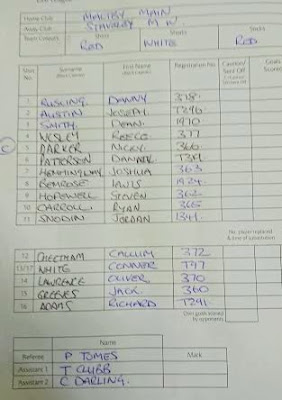 Home Club MALTBY MAIN
Away Club STAVELEY M.W.
Team Colours Shirts Shorts Socks
RED WHITE RED
Shirt No. Surname (Block Capitals) First Name (Block Capitals) Registration No. Caution/ Sent Off Goals Scored
1 RUSLING DANNY 378
2 AUSTIN JOSEPH
3 SMITH DEAN 1970
4 WESLEY REECE 377
C 5 DARKER NICKY 366
6 PATTERSON DANNY
7 HEMMINGWAY JOSHUA 363
8 BEMROSE 1924
9 HOPEWELL STEVEN 362
10 CARROLL RYAN 365
11 SNODIN JORDAN 1341
No. player replaced & time of substitution
12 CHEETHAM CALLUM 372
13/17 WHITE CONNER
14 LAWRENCE OLIVER 370
15 GREAVES JACK 360
16 ADAMS RICHARD T291
Own goals scored by opponents
Name
Referee P TOMES Mark
Assistant 1 T CLUBB
Assistant 2 C DARLING